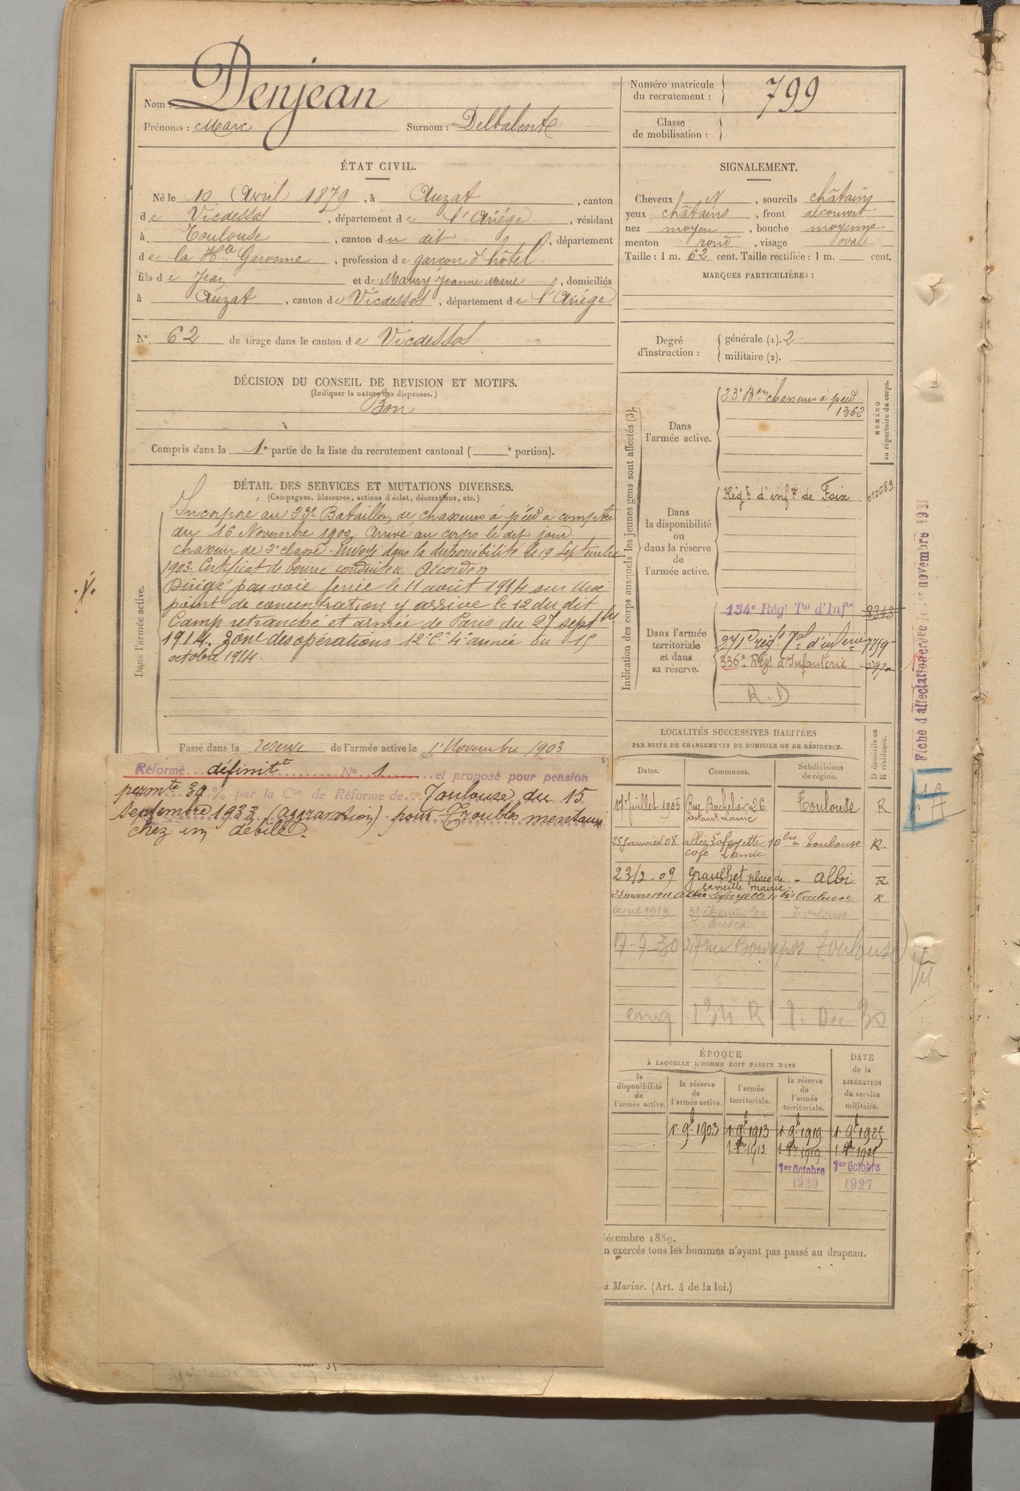 Nom : Denjean
Prénoms : Marc Surnom : Delbalent
ÉTAT CIVIL.
Né le 10 Avril 1879, à Auzat, canton
de Vicdessos, département de l'Ariège, résidant
à Toulouse, canton du dit, département
de la Hte Garonne, profession de garçon d'hôtel
fils de Jean et de Maury Jeanne Marie, domiciliés
à Auzat, canton de Vicdessos, département de l'Ariège
N° 62 de tirage dans le canton de Vicdessos
DÉCISION DU CONSEIL DE REVISION ET MOTIFS.
(Indiquer la nature des dispenses.)
Bon
Compris dans la 1e partie de la liste du recrutement cantonal ( e portion).
DÉTAIL DES SERVICES ET MUTATIONS DIVERSES.
(Campagnes, blessures, actions d'éclat, décorations, etc.)
Dans l'armée active.
Incorporé au 23e Bataillon de chasseurs à pied à compter
du 16 Novembre 1900. Arrivé au corps le dit jour
chasseur de 2e classe. Envoyé dans la disponibilité le 19 Septembre
1903. Certificat de bonne conduite Accordé
Dirigé par voie ferrée le 11 août 1914 sur un
point de concentration y arrive le 12 du dit
Camp retranché et armée de Paris du 27 septbre
1914. Zone des opérations 12e C. 4e armée du 15
octobre 1914.
Passé dans la réserve de l'armée active le 1er Novembre 1903
Réformé définitt N° 1 et proposé pour pension
permte 30 % par la Con de Réforme de Toulouse du 15
Septembre 1933 (aggravation) pour Troubles mentaux
chez un débile.
Numéro matricule du recrutement : 799
Classe de mobilisation :
SIGNALEMENT.
Cheveux N, sourcils châtains
yeux châtains, front découvert
nez moyen, bouche moyenne
menton rond, visage ovale
Taille : 1 m. 62 cent. Taille rectifiée : 1 m. cent.
MARQUES PARTICULIÈRES :
Degré d'instruction : générale (1). 2
militaire (2).
Indication des corps auxquels les jeunes gens sont affectés (3).
NUMÉRO au répertoire du corps.
Dans l'armée active.
23e Bon chasseurs à pied
1362
Dans la disponibilité ou dans la réserve de l'armée active.
Régt d'infie de Foix 010089
Dans l'armée territoriale et dans sa réserve.
134e Régt Tal d'Infie
336e Régt d'Infanterie
R.D
LOCALITÉS SUCCESSIVES HABITÉES
PAR SUITE DE CHANGEMENTS DE DOMICILE OU DE RÉSIDENCE.
Dates. Communes. Subdivisions de région. D domicile ou R résidence.
Juillet 1905 Rue Bachelier 26 Toulouse R
25 Janvier 08 allée Lafayette 10 bis Toulouse R
23/2 09 Graulhet place de la vieille mairie Albi R
23 mars 1911 allées Lafayette bis Toulouse R
avril 1913 Toulouse
17-7-30 27 rue Bourepos Toulouse
enq 134 R 1. Dec 30
ÉPOQUE
À LAQUELLE L'HOMME DOIT PASSER DANS
DATE de la LIBÉRATION du service militaire.
la disponibilité de l'armée active. la réserve de l'armée active. l'armée territoriale. la réserve de l'armée territoriale.
1er 9bre 1903 1er 9bre 1913 1er 9bre 1919 1er 9bre 1925
1er Octobre 1920 1er Octobre 1927
décembre 1889.
n exercés tous les hommes n'ayant pas passé au drapeau.
à Marine. (Art. 4 de la loi.)